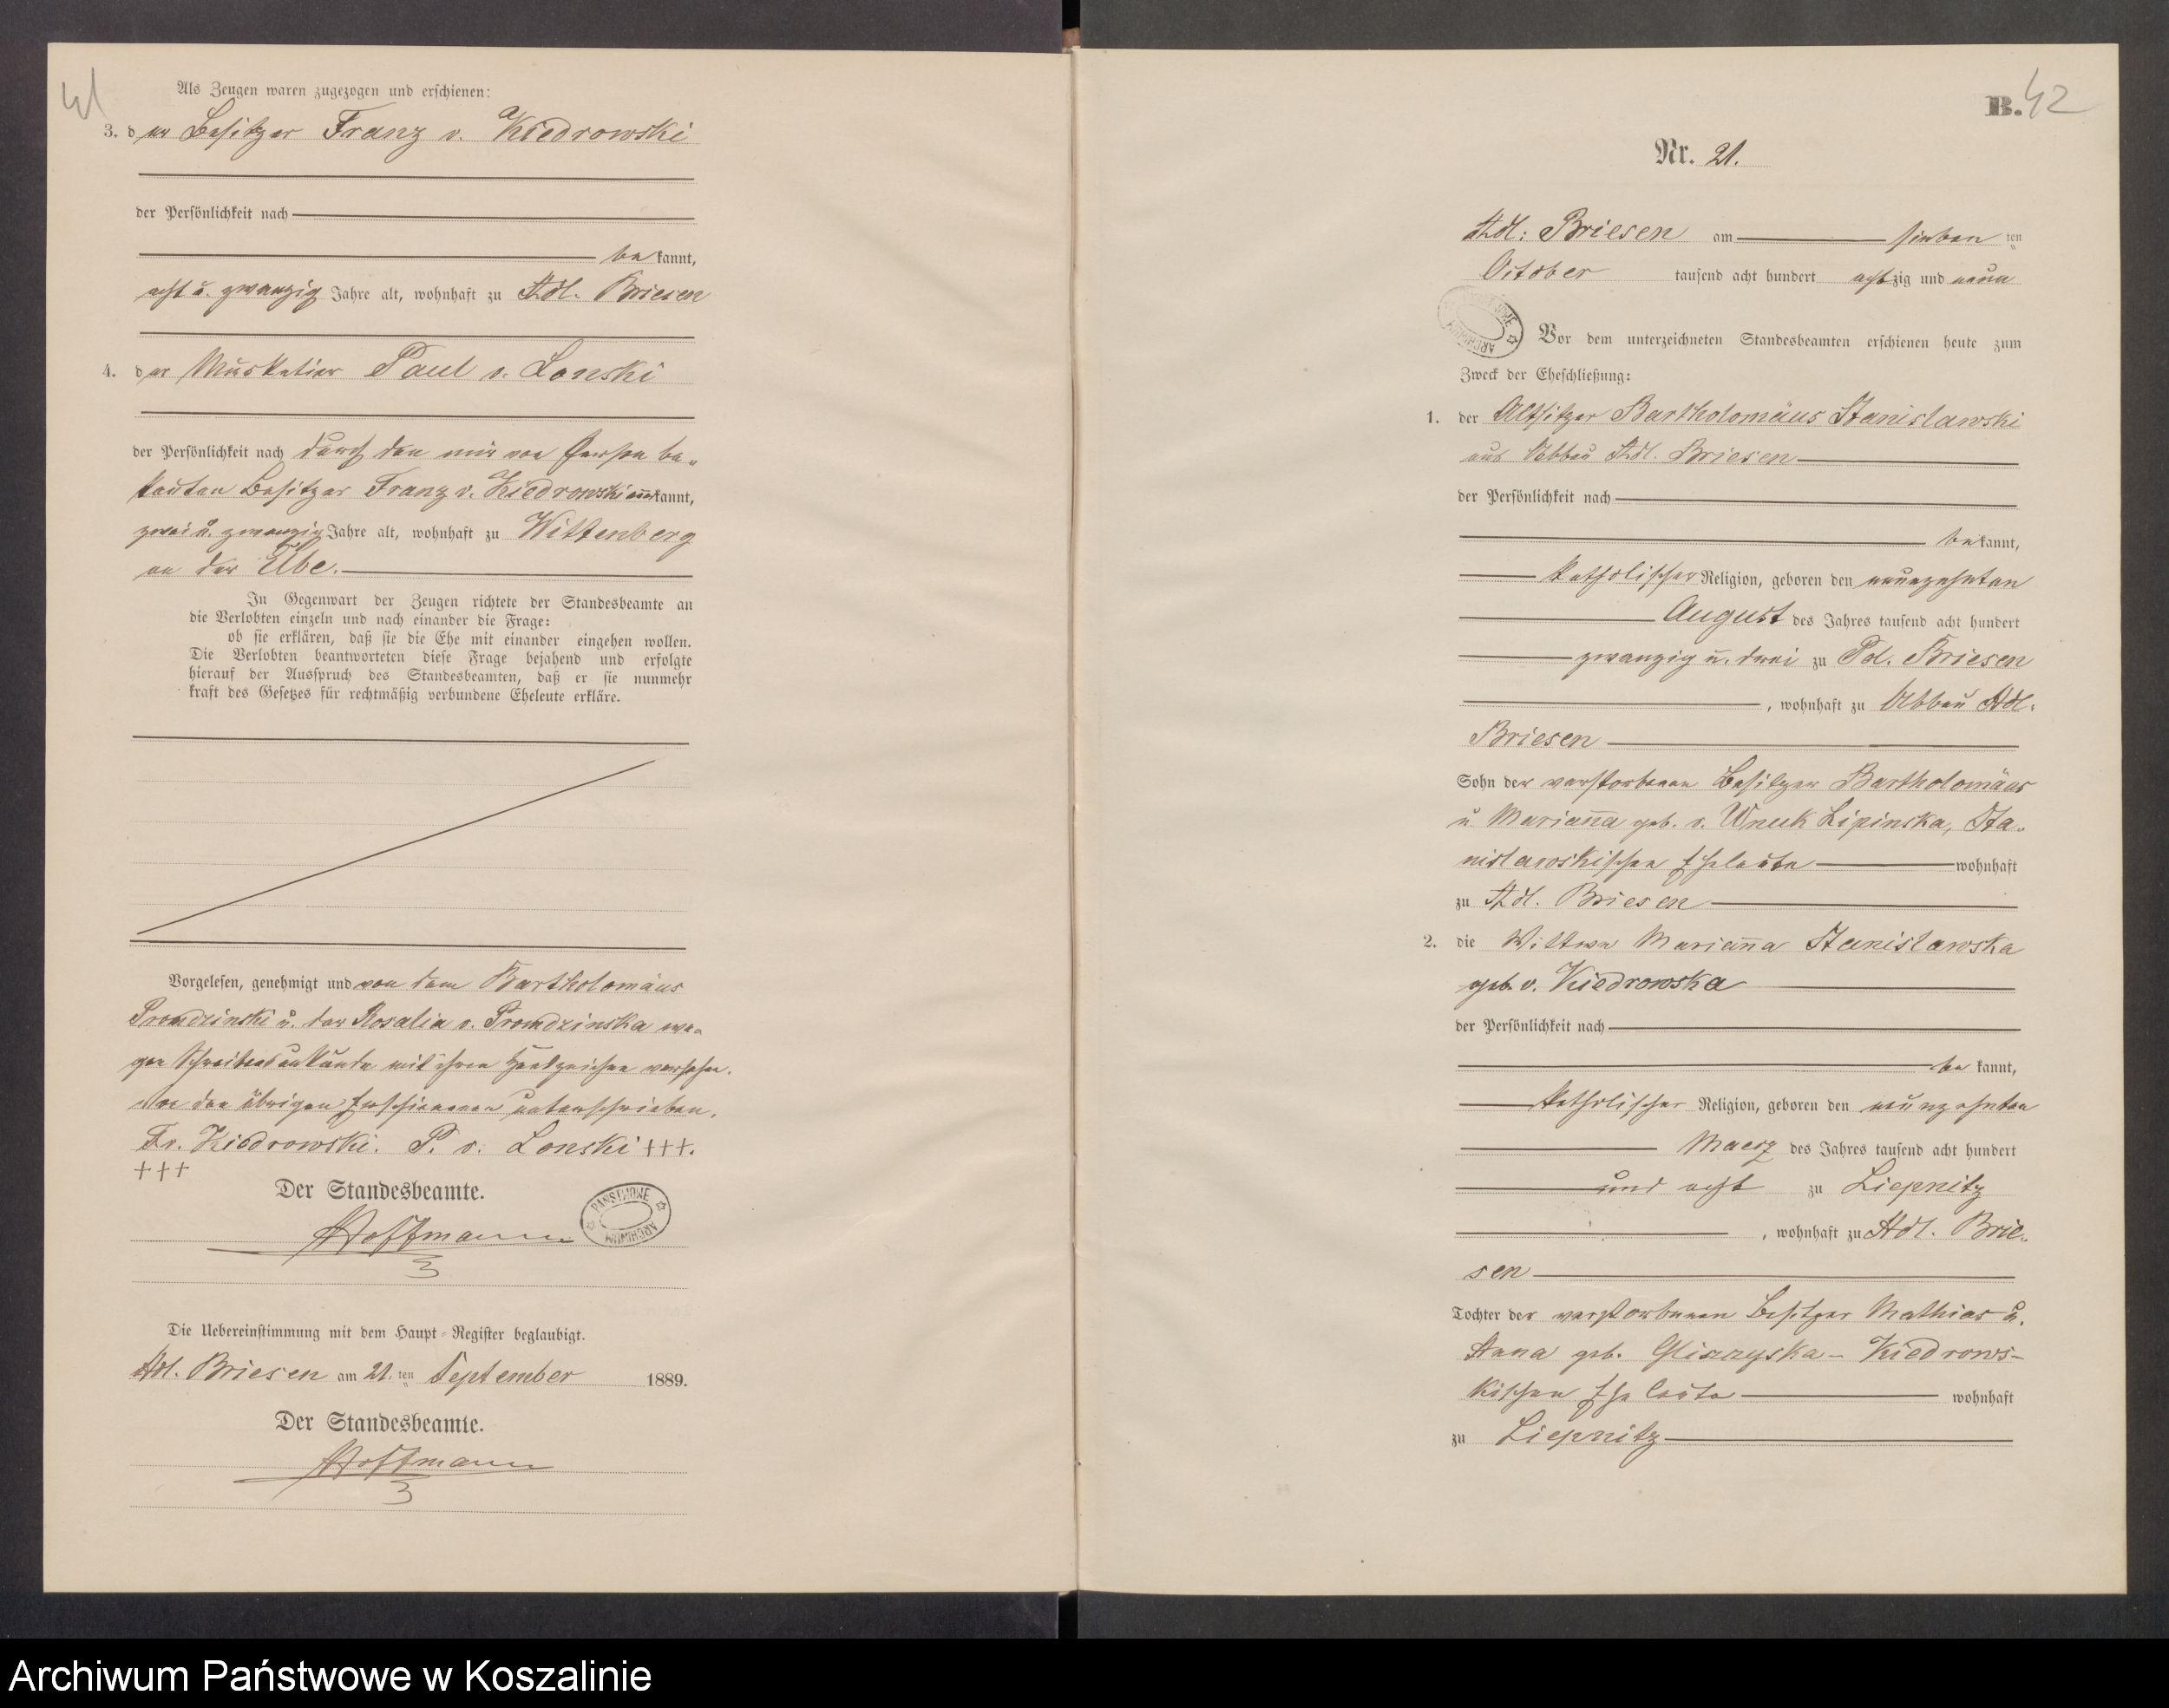 41
Als Zeugen waren zugezogen und erschienen:
3. der Besitzer Franz v. Kiedrowski
der Persönlichkeit nach
be kannt,
acht u. zwanzig Jahre alt, wohnhaft zu Adl. Briesen
4. der Musketier Paul v. Lonski
der Persönlichkeit nach durch den mir von Person be-
kannten Besitzer Franz v. Kiedrowski anerkannt,
zwei u. zwanzig Jahre alt, wohnhaft zu Wittenberg
an der Elbe.
In Gegenwart der Zeugen richtete der Standesbeamte an
die Verlobten einzeln und nach einander die Frage:
ob sie erklären, daß sie die Ehe mit einander eingehen wollen.
Die Verlobten beantworteten diese Frage bejahend und erfolgte
hierauf der Ausspruch des Standesbeamten, daß er sie nunmehr
kraft des Gesetzes für rechtmäßig verbundene Eheleute erkläre.
Vorgelesen, genehmigt und von dem Bartholomäus
Prondzinski u. der Rosalia v. Prondzinska we-
gen Schreibensunkunde mit ihren Handzeichen versehen.
Von den übrigen Erschienenen unterschrieben.
Fr. Kiedrowski. P. v. Lonski +++.
+++
Der Standesbeamte.
Hoffmann
PAŃSTWOWE ARCHIWUM
Die Uebereinstimmung mit dem Haupt-Register beglaubigt.
Adl. Briesen am 21.ten September 1889.
Der Standesbeamte.
Hoffmann
B. 42
Nr. 21.
Adl. Briesen am sieben ten
October tausend acht hundert achtzig und neun
ARCHIWUM
Vor dem unterzeichneten Standesbeamten erschienen heute zum
Zweck der Eheschließung:
1. der Altsitzer Bartholomäus Stanislawski
aus Abbau Adl. Briesen
der Persönlichkeit nach
be kannt,
katholischer Religion, geboren den neunzehnten
August des Jahres tausend acht hundert
zwanzig u. drei zu Pol. Briesen
, wohnhaft zu Abbau Adl.
Briesen
Sohn der verstorbenen Besitzer Bartholomäus
u. Marianna geb. v. Wnuk Lipinska, Sta-
nislawskischen Eheleute wohnhaft
zu Adl. Briesen
2. die Wittwe Marianna Stanislawska
geb. v. Kiedrowska
der Persönlichkeit nach
be kannt,
katholischer Religion, geboren den neunzehnten
Maerz des Jahres tausend acht hundert
und acht zu Liepnitz
, wohnhaft zu Adl. Brie-
sen
Tochter der verstorbenen Besitzer Mathias u.
Anna geb. Kiedrows-
kischen Eheleute wohnhaft
zu Liepnitz
Archiwum Państwowe w Koszalinie